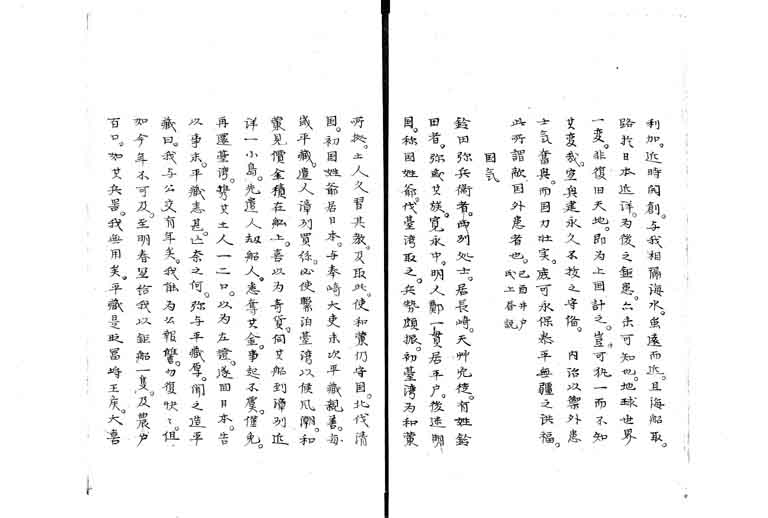 利加。近時開創。与我相隔海水。虽遠而近。且海船取
路於日本近洋。為後之鉅患。亦未可知也。地球世界
一変。非復旧天地。即為上国計之。豈可執一而不知
其変哉。宜興建永久不抜之守備。内治以禦外患
士気奮興。而国力壮実。庶可永保泰平無疆之洪福。
此所謂敵国外患者也。己酉井戸氏上答説
国気
鈴田弥兵衛者。西列処士。居長崎。天艸兇徒。有姓鈴
田者。弥或其族。寛永中。明人鄭一貫居平戸。後還明
国。称国姓爺。伐臺湾取之。兵勢頗振。初臺湾為和蘭
所拠。土人久習其教。及取此。使和蘭仍守国。北伐清
国。初国姓爺居日本。与奉崎大吏末次平藏親善。毎
歳平藏。遣人漳列買係。必使繋泊臺湾以候風潮。和
蘭見價金積在船上。喜以為奇貨。伺其船到漳列近
洋一小島。先遣人劫船人。悉奪其金。事起不虞。僅免
再還臺湾。携其土人一二口。以為左證。遂回日本。告
以事末。平藏恚甚。亡奈之何。弥与平藏厚。聞之造平
藏曰。我与公交有年矣。我能為公報讐。勿復怏々。但
如今年不可及。至明春里給我以鉅船一隻。及農戸
百口。如其兵器。我無用矣。平藏是時冨埒王矦。大喜